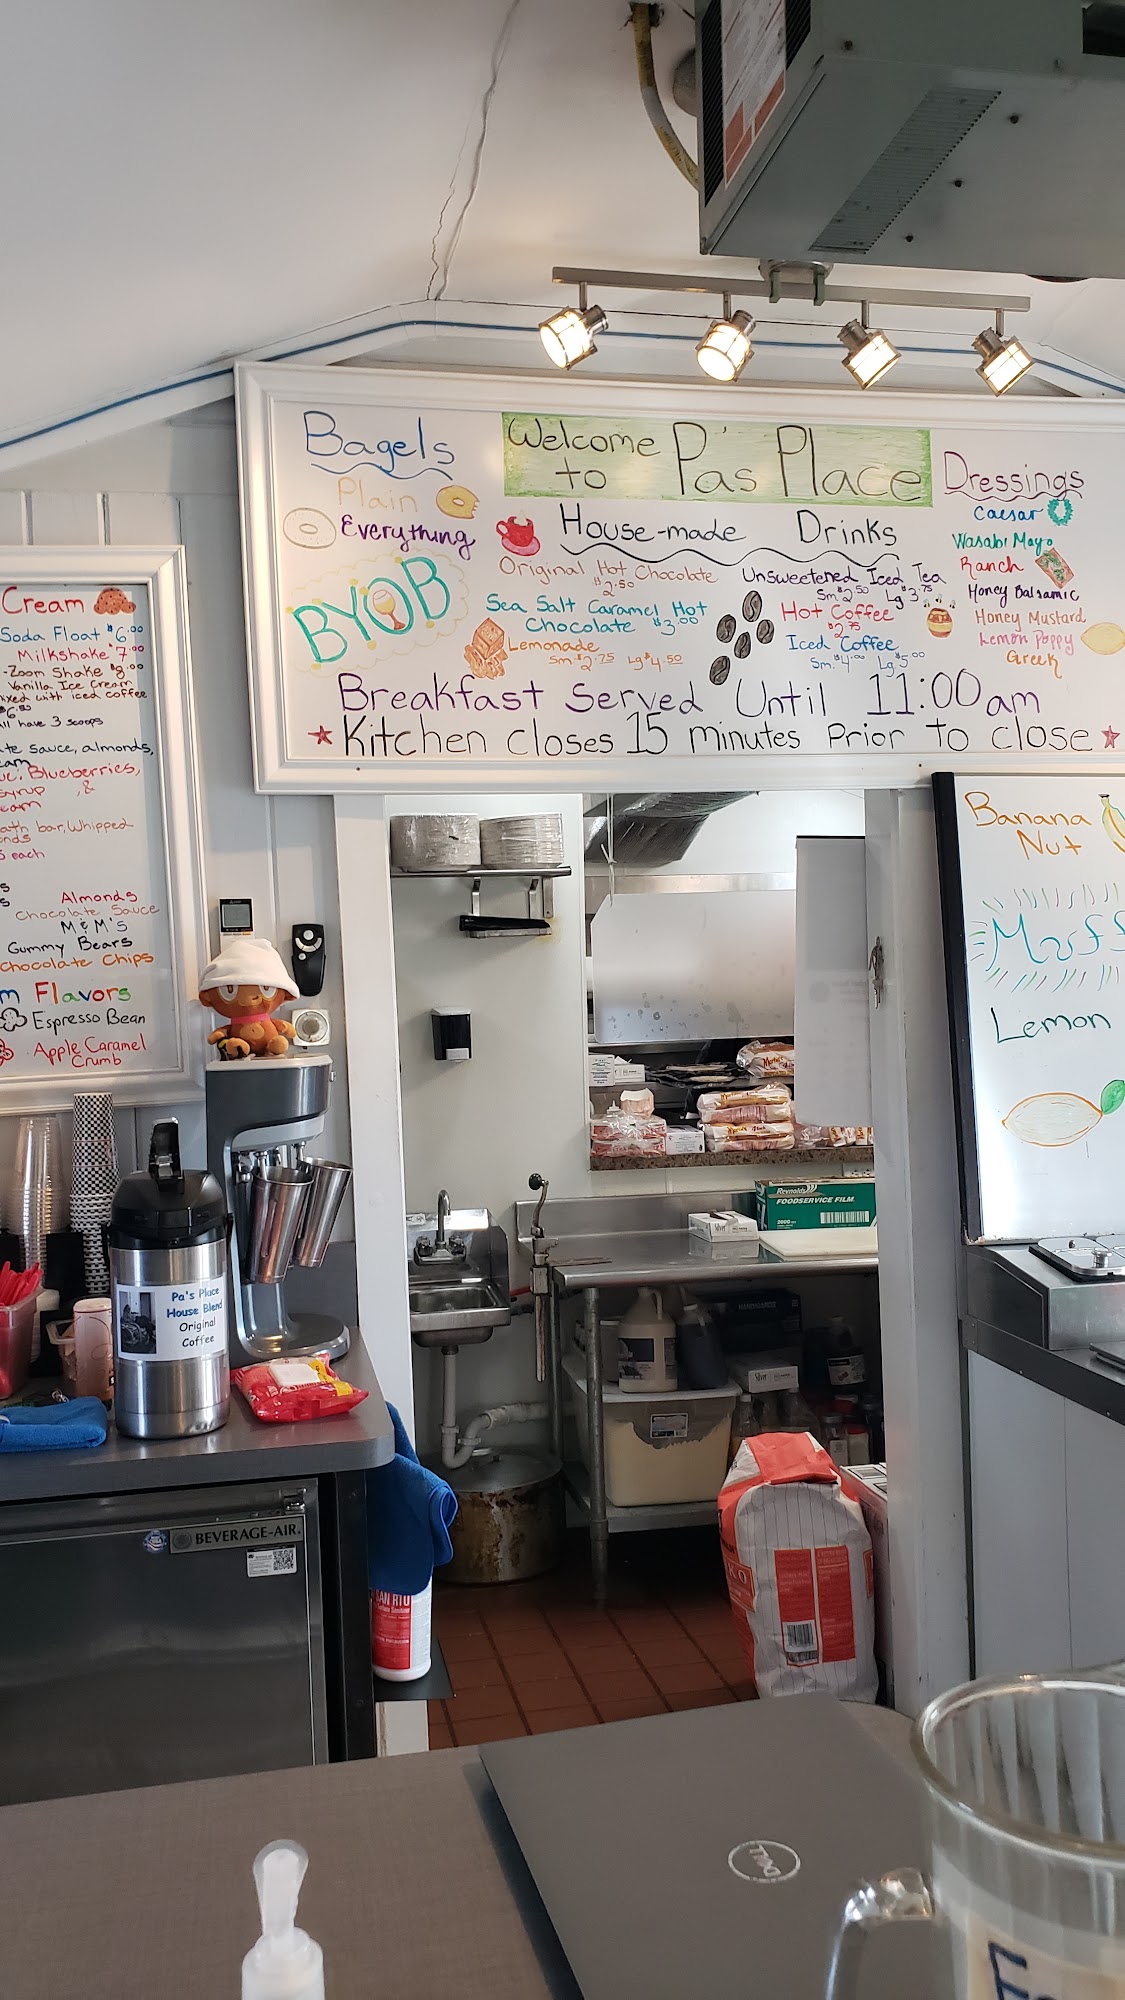 Bagels
Plain
Everything
BYOB
Welcome
to Pa's Place
House-made Drinks
Original Hot Chocolate
$2.50
Sea Salt Caramel Hot
Chocolate $3.00
Lemonade
Sm $2.75 Lg $4.50
Unsweetened Iced Tea
Sm $2.50 Lg $3.75
Hot Coffee
$2.75
Iced Coffee
Sm. $4.00 Lg $5.00
Dressings
Caesar
Wasabi Mayo
Ranch
Honey Balsamic
Honey Mustard
Lemon Poppy
Greek
Breakfast Served Until 11:00 am
Kitchen closes 15 minutes Prior to close
Cream
Soda Float $6.00
Milkshake $7.00
-Zoom Shake $8.00
Vanilla Ice Cream
mixed with iced coffee
have 3 scoops
sauce, almonds,
Blueberries,
syrup, &
bar, Whipped
each
Almonds
Chocolate Sauce
M & M's
Gummy Bears
Chocolate Chips
Flavors
Espresso Bean
Apple Caramel
Crumb
Banana
Nut
Muff
Lemon
Pa's Place
House Blend
Original
Coffee
BEVERAGE-AIR
Reynolds
FOODSERVICE FILM
2000
SANI
DELL